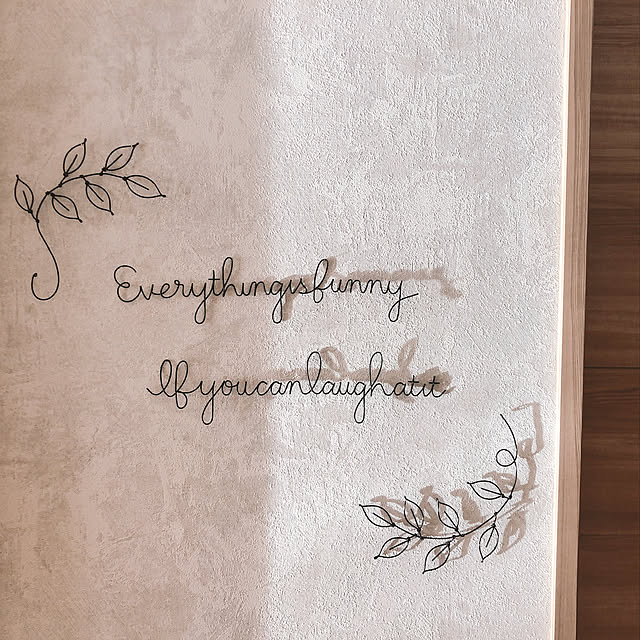 Everythingisfunny
Ifyoucanlaughatit